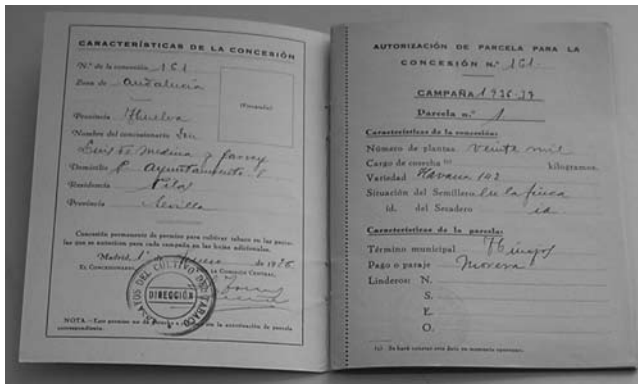 CARACTERÍSTICAS DE LA CONCESIÓN
N.º de la concesión 161
Zona de Andalucía
(Fotografía)
Provincia Huelva
Nombre del concesionario Don
Luis de Medina y Garvey
Domicilio P. Ayuntamiento 8
Residencia Pilas
Provincia Sevilla
Concesión permanente de permiso para cultivar tabaco en las parce-
las que se autoricen para cada campaña en las hojas adicionales.
Madrid, 1º de de 1936
EL CONCESIONARIO, LA COMISIÓN CENTRAL,
ENSAYOS DEL CULTIVO DEL TABACO
DIRECCIÓN
NOTA.—Este permiso no es la autorización de parcela
correspondiente.
AUTORIZACIÓN DE PARCELA PARA LA
CONCESIÓN N.º 161
CAMPAÑA 1936-37
Parcela n.º 1
Características de la concesión:
Número de plantas veinte mil
Cargo de cosecha (1) kilogramos.
Variedad Havana 142
Situación del Semillero En la finca
id. del Secadero id
Características de la parcela:
Término municipal Hinojos
Pago o paraje Morera
Linderos: N.
S.
E.
O.
(1) Se hará constar este dato en momento oportuno.